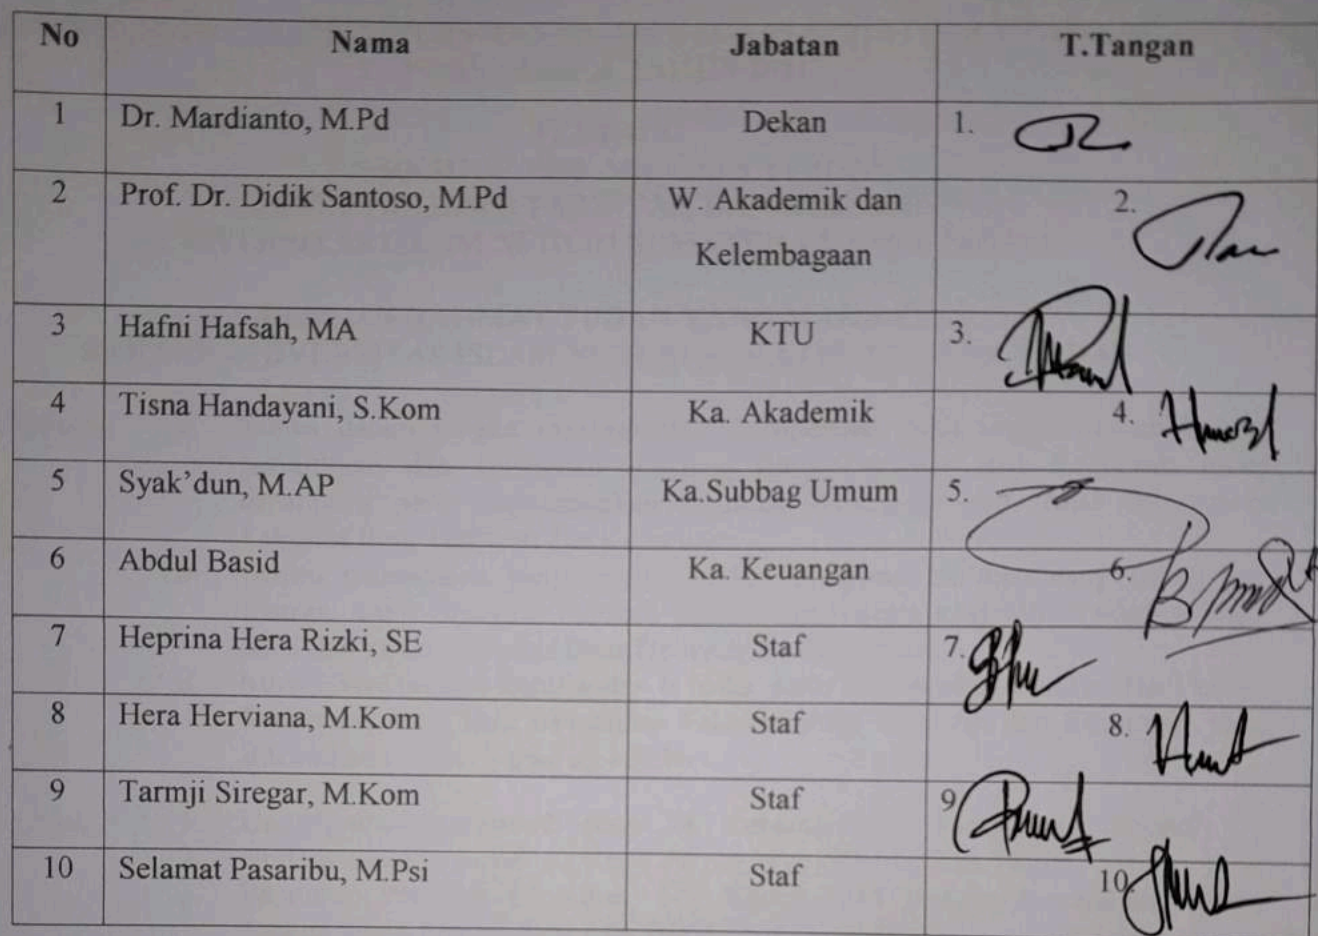 No Nama Jabatan T.Tangan
1 Dr. Mardianto, M.Pd Dekan 1.
2 Prof. Dr. Didik Santoso, M.Pd W. Akademik dan 2.
Kelembagaan
3 Hafni Hafsah, MA KTU 3.
4 Tisna Handayani, S.Kom Ka. Akademik 4.
5 Syak’dun, M.AP Ka.Subbag Umum 5.
6 Abdul Basid Ka. Keuangan 6.
7 Heprina Hera Rizki, SE Staf 7.
8 Hera Herviana, M.Kom Staf 8.
9 Tarmji Siregar, M.Kom Staf 9
10 Selamat Pasaribu, M.Psi Staf 10.